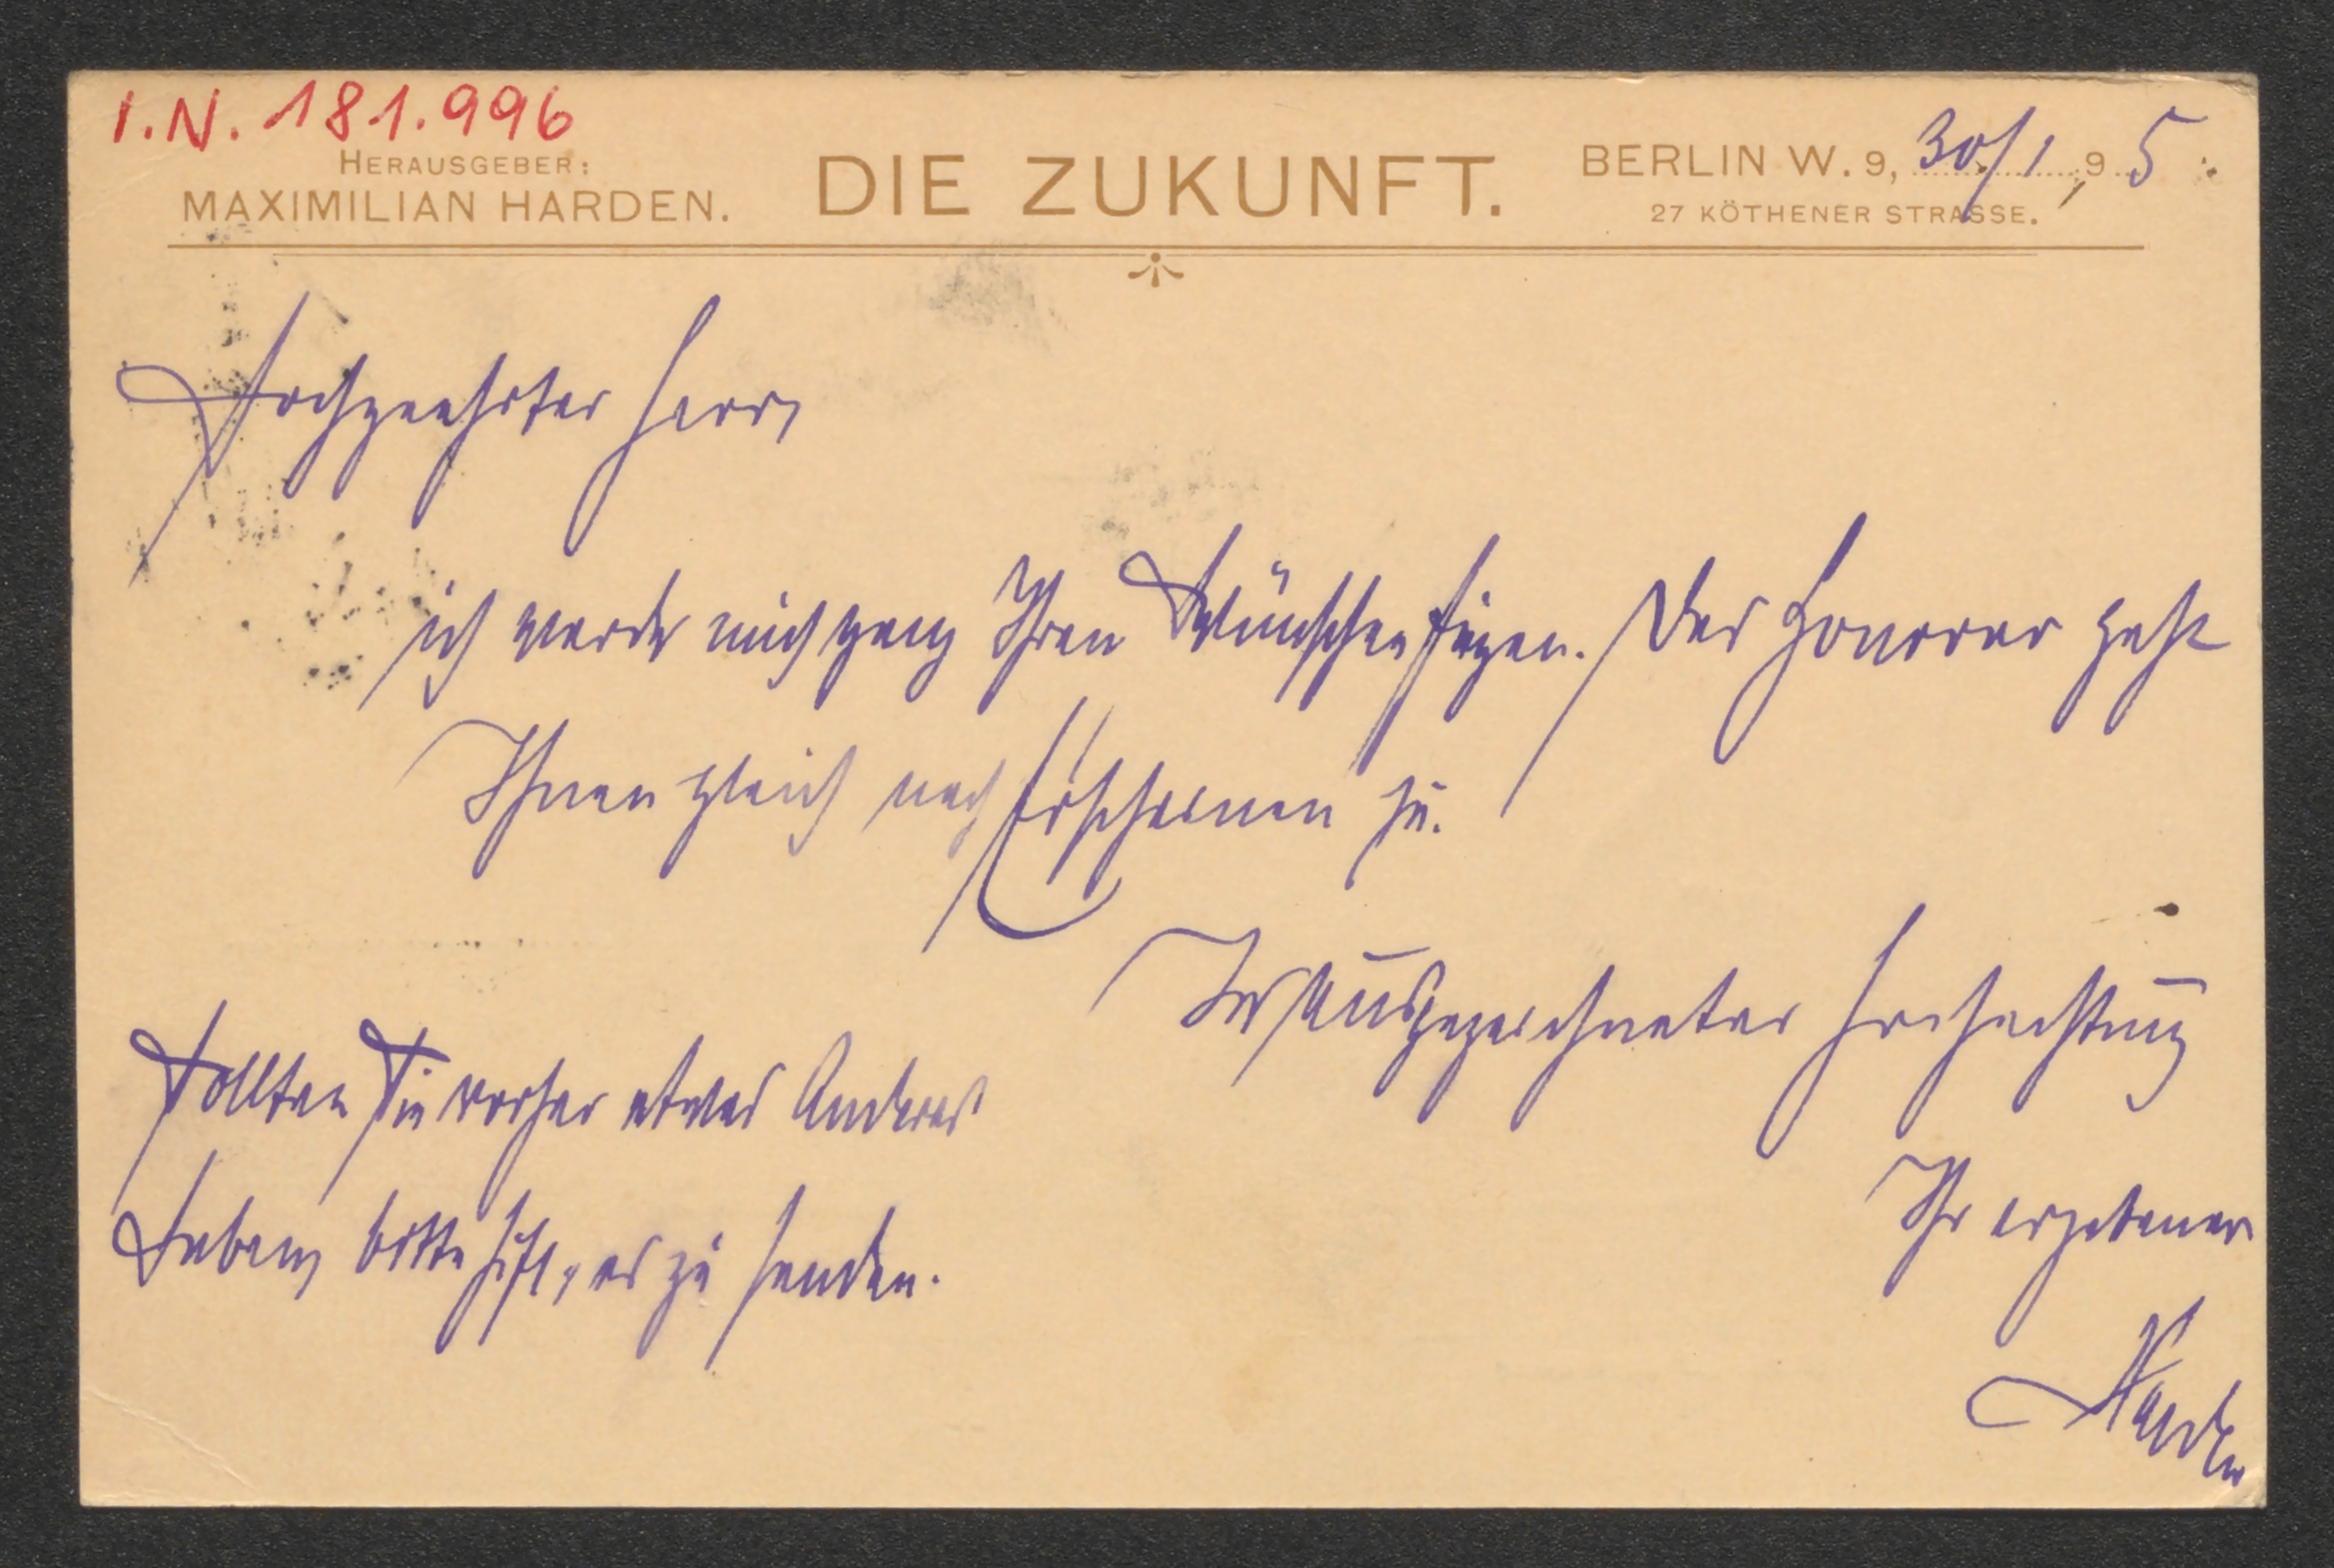 I.N. 181.996
HERAUSGEBER:
MAXIMILIAN HARDEN.
DIE ZUKUNFT.
BERLIN W. 9, 30/1 95
27 KÖTHENER STRASSE.
Hochgeehrter Herr
ich werde mich ganz Ihren Wünschen fügen. Das Honorar geht
Ihnen gleich nach Erscheinen zu.
In ausgezeichneter Hochachtung
Ihr ergebener
Harden
Sollten Sie vorher etwas Anderes
haben, bitte ich, es zu senden.